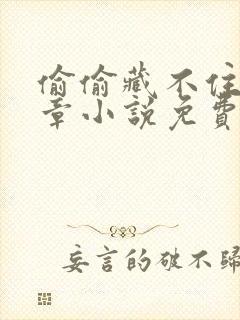 偷偷藏不住
章小說免費
妄言的破不歸